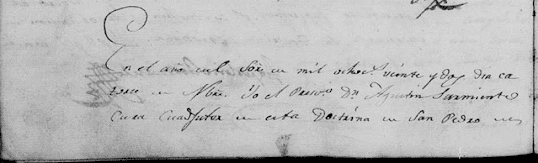 En el año del Sōr en mil ochoc.s veinte y dos dia ca
torce en Nbre. Yo el Presvo. Dn. Agustin Sarmiento
Cura Cuadjutor en esta Doctrina en San Pedro en